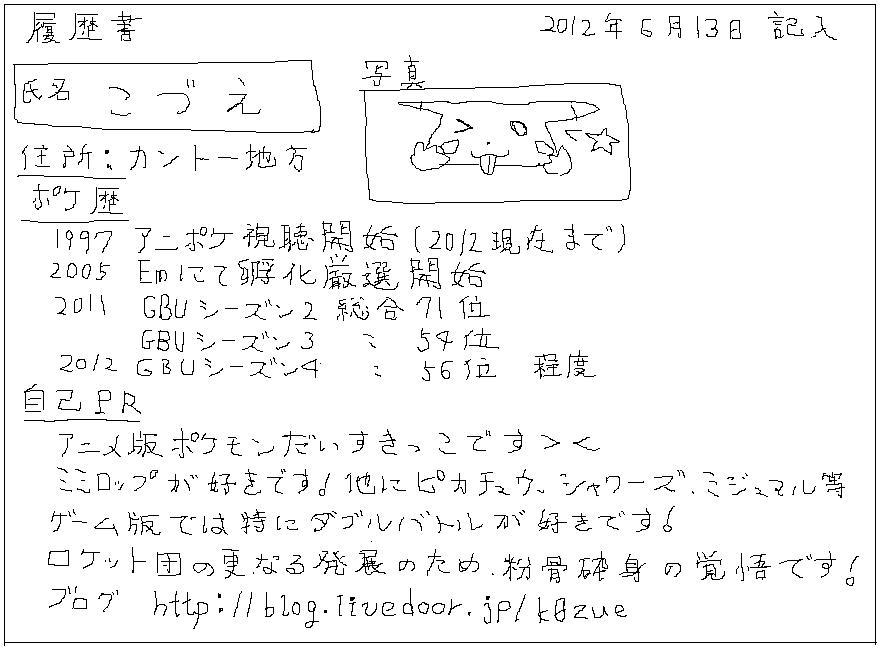 履歴書 2012年6月13日 記入
氏名 こづえ
写真
住所:カントー地方
ポケ歴
1997 アニポケ視聴開始(2012現在まで)
2005 Emにて孵化厳選開始
2011 GBUシーズン2 総合71位
GBUシーズン3 〃 54位
2012 GBUシーズン4 〃 56位 程度
自己PR
アニメ版ポケモンだいすきっこです><
ミミロップが好きです!他にピカチュウ、シャワーズ、ミジュマル等
ゲーム版では特にダブルバトルが好きです!
ロケット団の更なる発展のため、粉骨砕身の覚悟です!
ブログ http://blog.livedoor.jp/k0zue